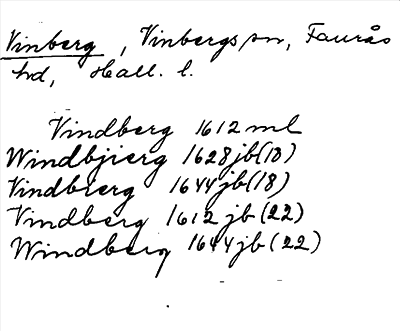 Vinberg, Vinbergs sn, Faurås
hd, Hall. l.
Vindberg 1612 ml
Windbjierg 1628 jb (18)
Vindbierg 1644 jb (18)
Vindberg 1612 jb (22)
Windberg 1644 jb (22)